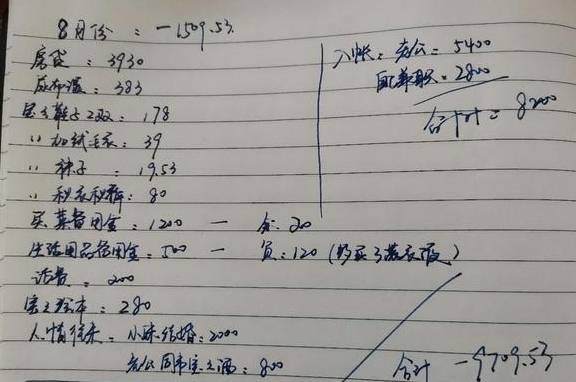 8月份：-1509.53
房贷：3930
尿布湿：383
宝宝鞋子2双：178
〃 加绒毛衣：39
〃 袜子：19.53
〃 秋衣秋裤：80
买菜备用金：1200 — 余：20
生活用品备用金：500 — 负：120（妈买了套衣服）
话费：200
宝宝绘本：280
人情往来：小妹结婚：2000
老公同事宝宝酒：800
入帐：老公：5400
兼职：2800
合计：8200
合计 -9709.53